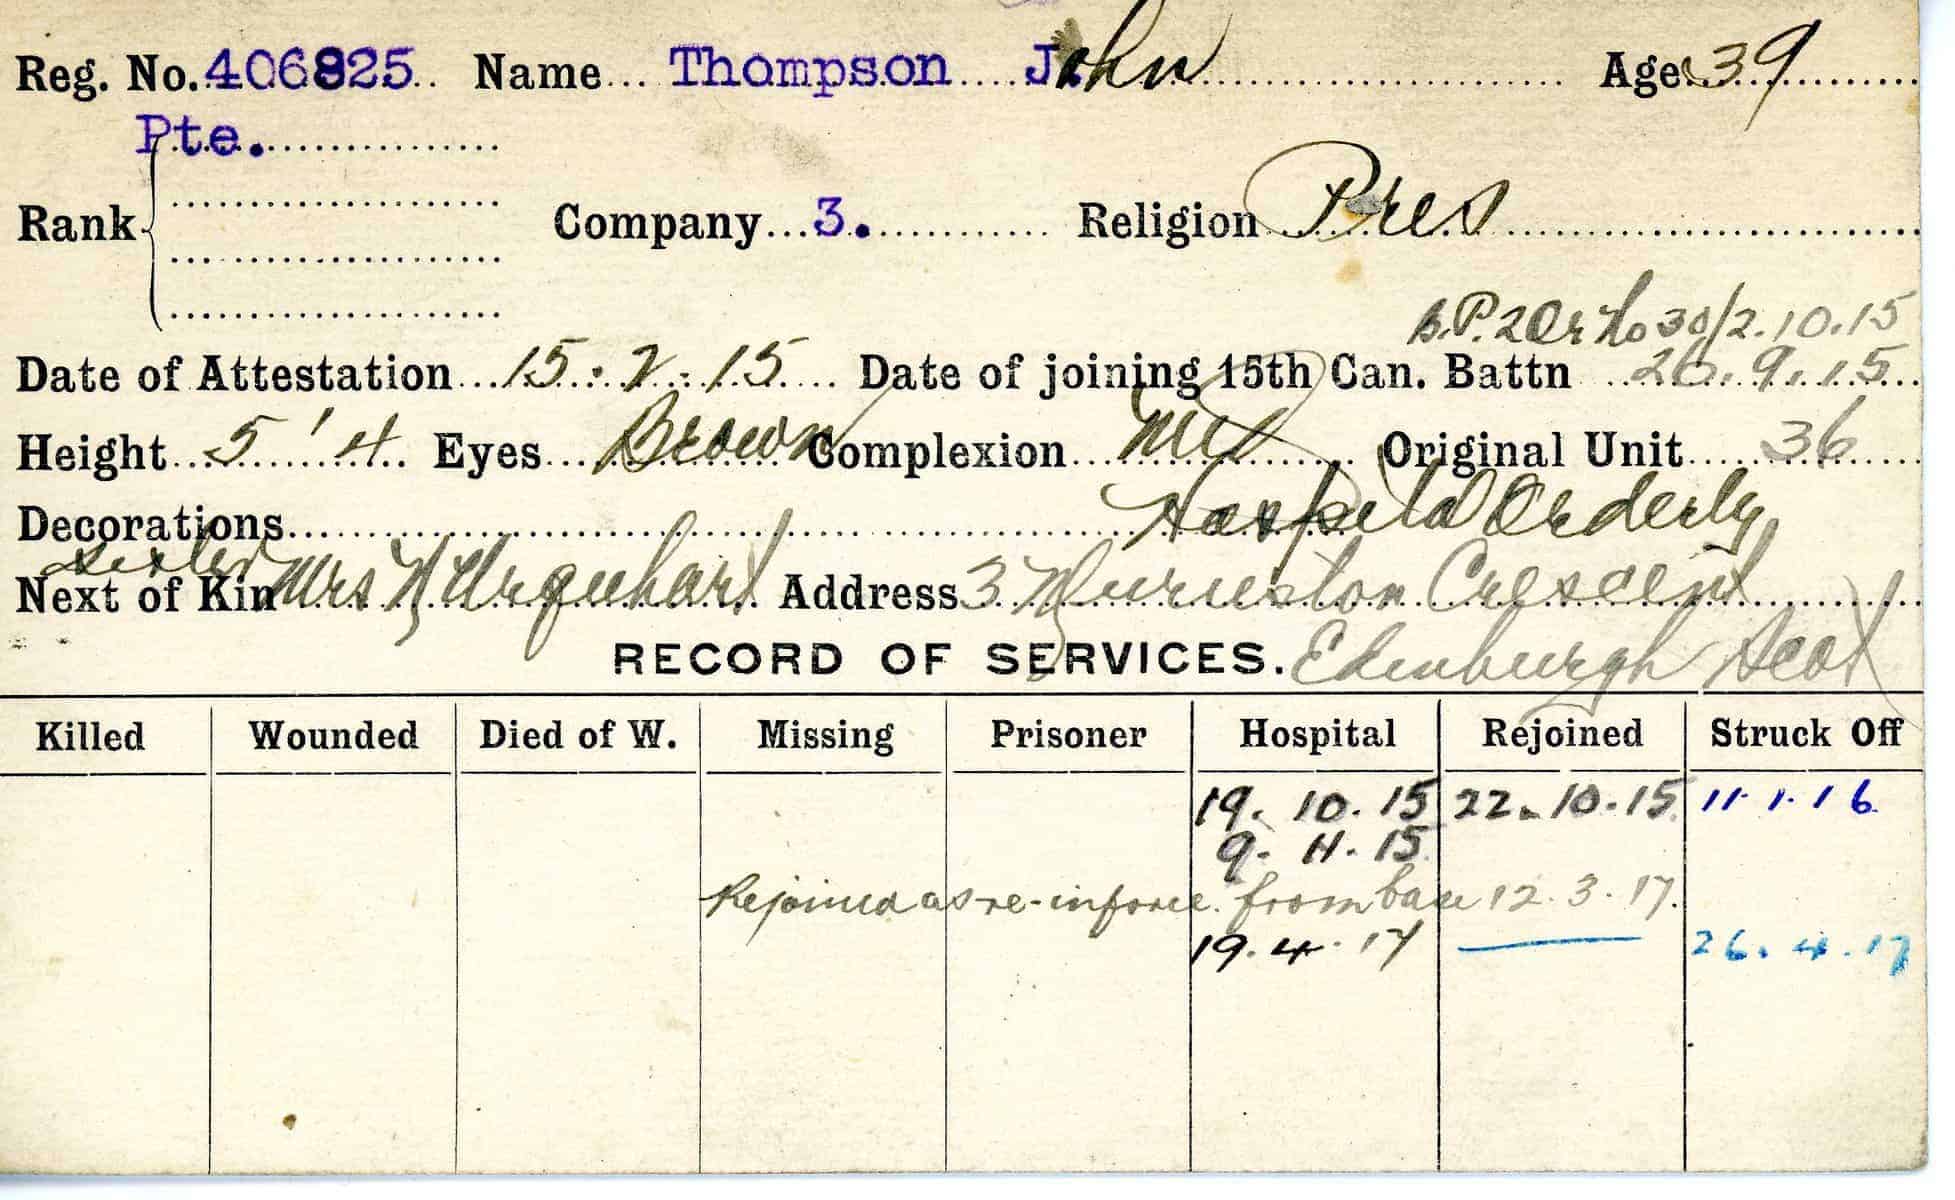 Reg. No. 406825 Name Thompson John Age 39
Pte.
Rank Company 3. Religion Pres
30/2.10.15
Date of Attestation 15.2.15 Date of joining 15th Can. Battn 26.9.15
Height 5'4 Eyes Brown Complexion Original Unit 36
Decorations Hospital Orderly
sister
Next of Kin Mrs N Urquhart Address 3 Murieston Crescent
RECORD OF SERVICES. Edinburgh Scot
Killed Wounded Died of W. Missing Prisoner Hospital Rejoined Struck Off
19. 10. 15 22. 10. 15 11.1.16
9. 11. 15
Rejoined as re-inforce. from base 12.3.17.
19.4.17 26.4.17